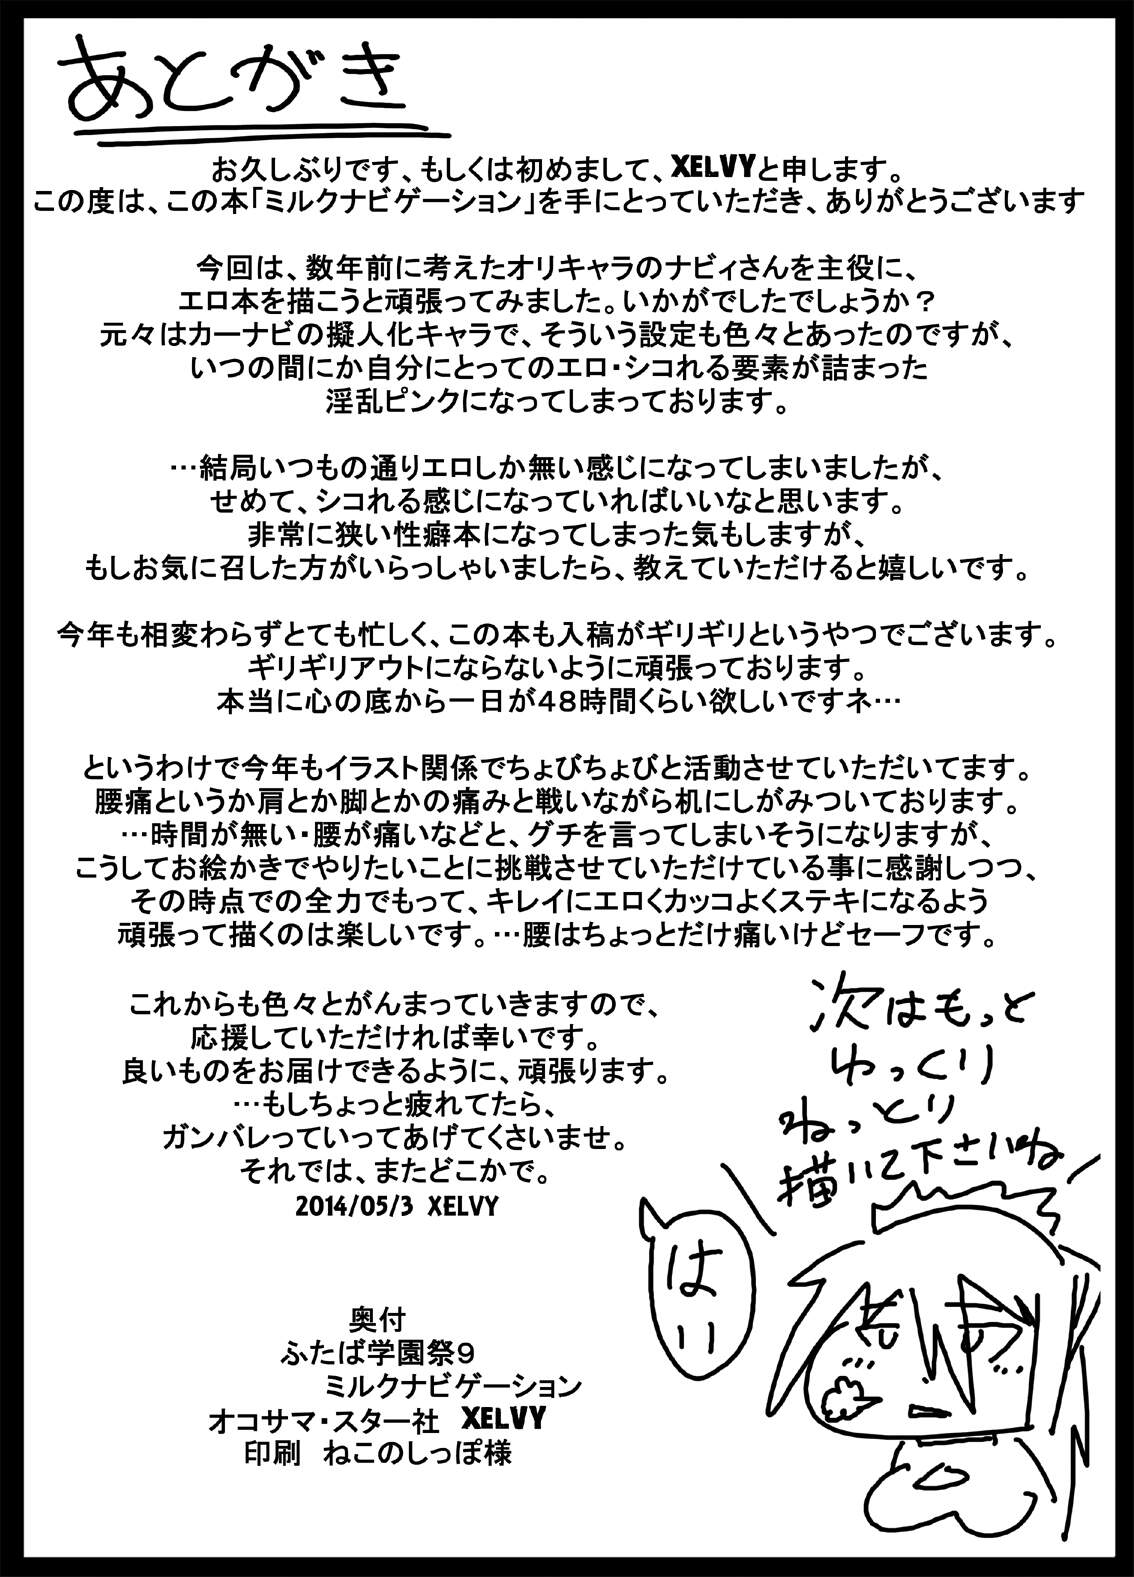 あとがき
お久しぶりです、もしくは初めまして、XELVYと申します。
この度は、この本「ミルクナビゲーション」を手にとっていただき、ありがとうございます
今回は、数年前に考えたオリキャラのナビィさんを主役に、
エロ本を描こうと頑張ってみました。いかがでしたでしょうか？
元々はカーナビの擬人化キャラで、そういう設定も色々とあったのですが、
いつの間にか自分にとってのエロ・シコれる要素が詰まった
淫乱ピンクになってしまっております。
…結局いつもの通りエロしか無い感じになってしまいましたが、
せめて、シコれる感じになっていればいいなと思います。
非常に狭い性癖本になってしまった気もしますが、
もしお気に召した方がいらっしゃいましたら、教えていただけると嬉しいです。
今年も相変わらずとても忙しく、この本も入稿がギリギリというやつでございます。
ギリギリアウトにならないように頑張っております。
本当に心の底から一日が４８時間くらい欲しいですネ…
というわけで今年もイラスト関係でちょびちょびと活動させていただいてます。
腰痛というか肩とか脚とかの痛みと戦いながら机にしがみついております。
…時間が無い・腰が痛いなどと、グチを言ってしまいそうになりますが、
こうしてお絵かきでやりたいことに挑戦させていただけている事に感謝しつつ、
その時点での全力でもって、キレイにエロくカッコよくステキになるよう
頑張って描くのは楽しいです。…腰はちょっとだけ痛いけどセーフです。
これからも色々とがんまっていきますので、
応援していただければ幸いです。
良いものをお届けできるように、頑張ります。
…もしちょっと疲れてたら、
ガンバレっていってあげてくさいませ。
それでは、またどこかで。
2014/05/3 XELVY
次はもっと
ゆっくり
ねっとり
描いて下さいね
はい
奥付
ふたば学園祭９
ミルクナビゲーション
オコサマ・スター社 XELVY
印刷 ねこのしっぽ様